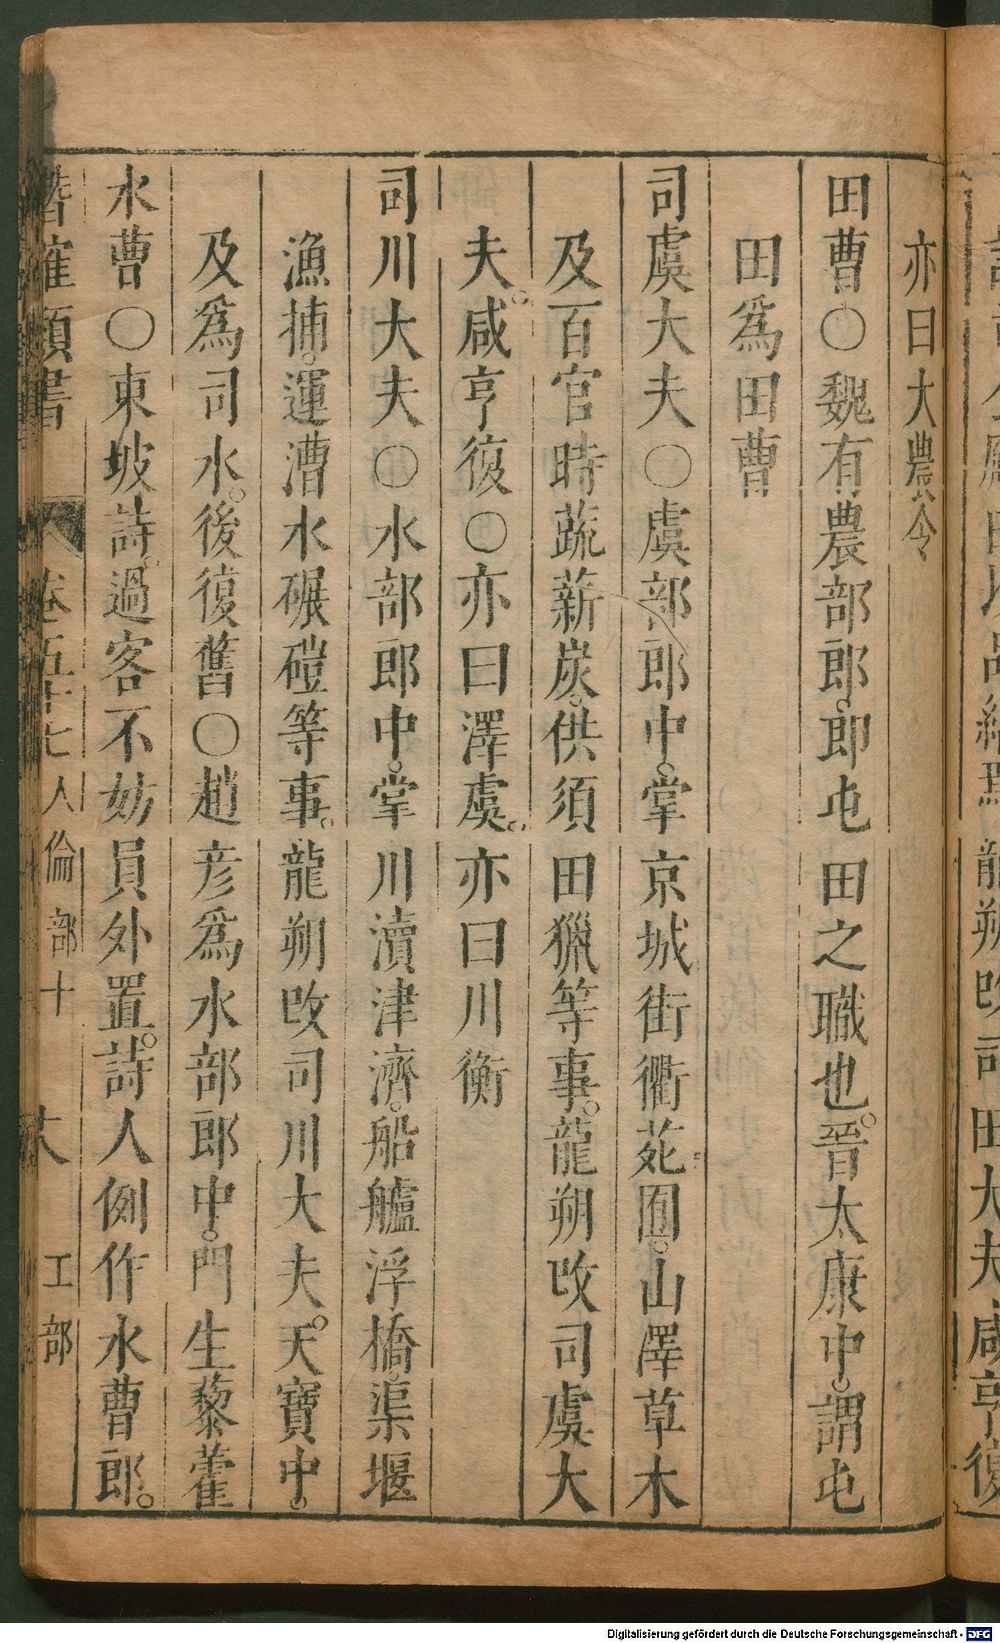 亦曰大農令
田曹〇魏有農部郎。即屯田之職也。晉太康中。謂屯
田爲田曹
司虞大夫〇虞部郎中。掌京城街衢苑囿。山澤草木
及百官時蔬薪炭。供須田獵等事。龍朔改司虞大
夫。咸亨復〇亦曰澤虞。亦曰川衡
司川大夫〇水部郎中。掌川瀆津濟。船艫浮橋。渠堰
漁捕。運漕水碾磑等事。龍朔改司川大夫。天寶中。
及爲司水。後復舊〇趙彦爲水部郎中。門生藜藿
水曹〇東坡詩。過客不妨員外置。詩人例作水曹郎。
潛確類書
卷五十七 人倫部十 大 工部
Digitalisierung gefördert durch die Deutsche Forschungsgemeinschaft - DFG